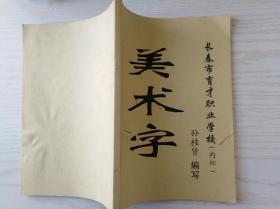 长春市育才职业学校（内部）
美术字
孙桂贤 编写